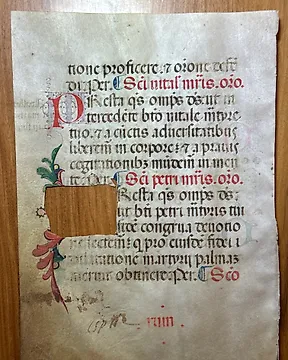 tione proficere. ⁊ oront
di. Per. Sci vitał mris. oro.
Presta qs omps ds. ut in
tercedēte bto vitale m̄tyre
tuo. ⁊ a cūctis adversitatibus
liberem̄ in corpore: ⁊ a pravis
cogitationibȝ mūdem̄ in men
te. Per. Sci petri mris. oro.
resta qs omps ds.
ut bti petri m̄tyris tui
fidē congrua devotio
ne sectem̄: q pro eiusdē fidei
dilatatione martyrii palmaȝ
meruit obtinere. Per. Sco